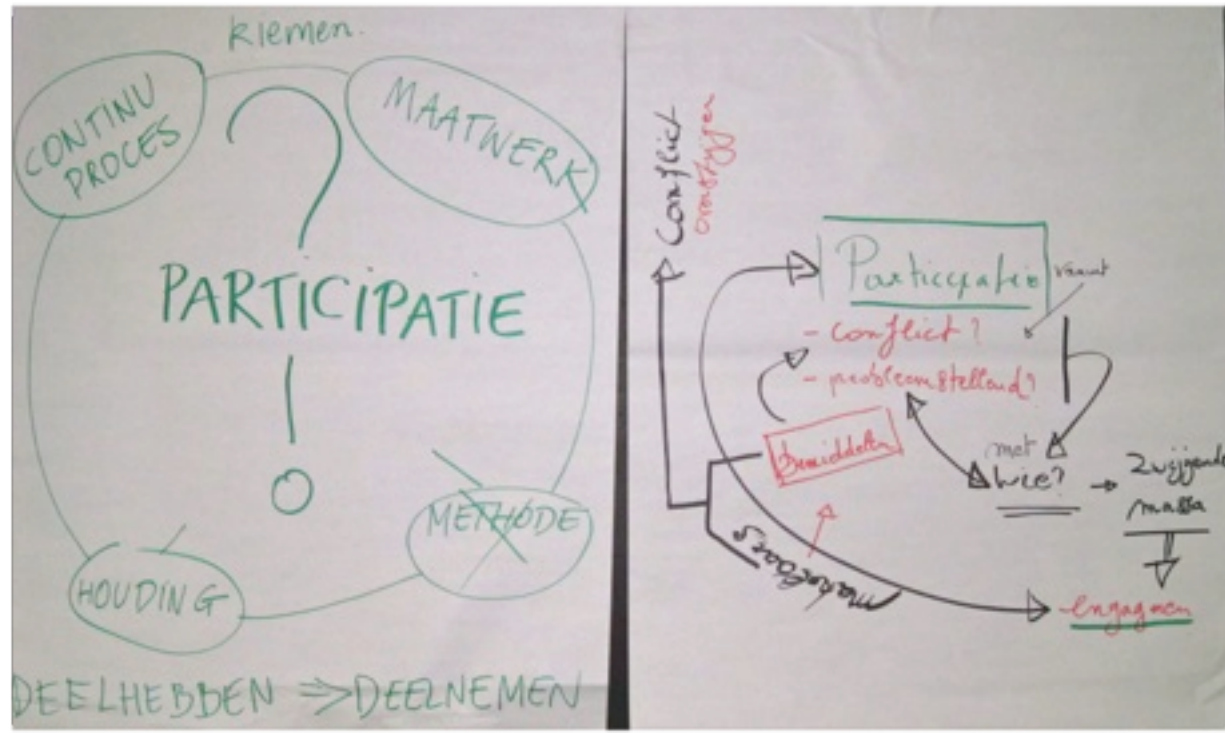 kiemen.
CONTINU
PROCES
MAATWERK
?
PARTICIPATIE
!
METHODE
HOUDING
DEELHEBBEN => DEELNEMEN
Conflict
Participatie
- conflict?
- probleemstellend?
bemiddelen
met
wie? → zwijgende
massa
- engageren